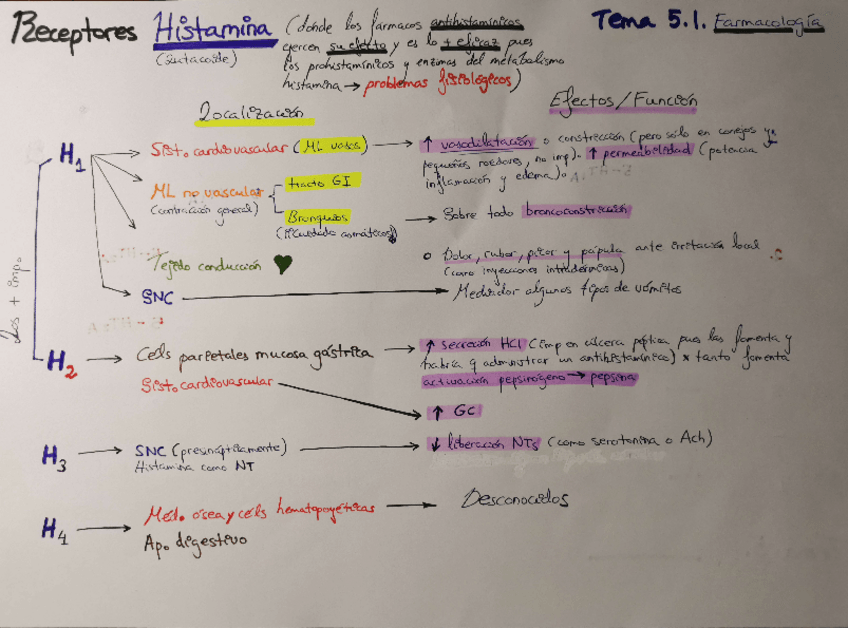 Receptores Histamina (donde los fármacos antihistamínicos Tema 5.1. Farmacología
(autacoide) ejercen su efecto y es lo + eficaz pues
los prohistamínicos y enzimas del metabolismo
histamina → problemas fisiológicos)
Localización Efectos/Función
Los + imp.
H1
Sist. cardiovascular (ML vasos) → ↑ vasodilatación o constricción (pero sólo en conejos y
pequeños roedores, no imp). ↑ permeabilidad (potencia
inflamación y edema).
ML no vascular
(contracción general)
tracto GI
Bronquios → Sobre todo broncoconstricción
asmáticos)
Tejido conducción ♥
Dolor, rubor, picor y pápula ante irritación local
(como inyecciones intradérmicas)
SNC → Mediador algunos tipos de vómitos
H2 → Cels parietales mucosa gástrica → ↑ secreción HCl (imp en úlcera péptica pues las fomenta y
habría q administrar un antihistamínico) x tanto fomenta
activación pepsinógeno → pepsina
Sist. cardiovascular → ↑ GC
H3 → SNC (presinápticamente) → ↓ liberación NTs (como serotonina o Ach)
Histamina como NT
H4 → Méd. ósea y cels hematopoyéticas → Desconocidos
Ap. digestivo